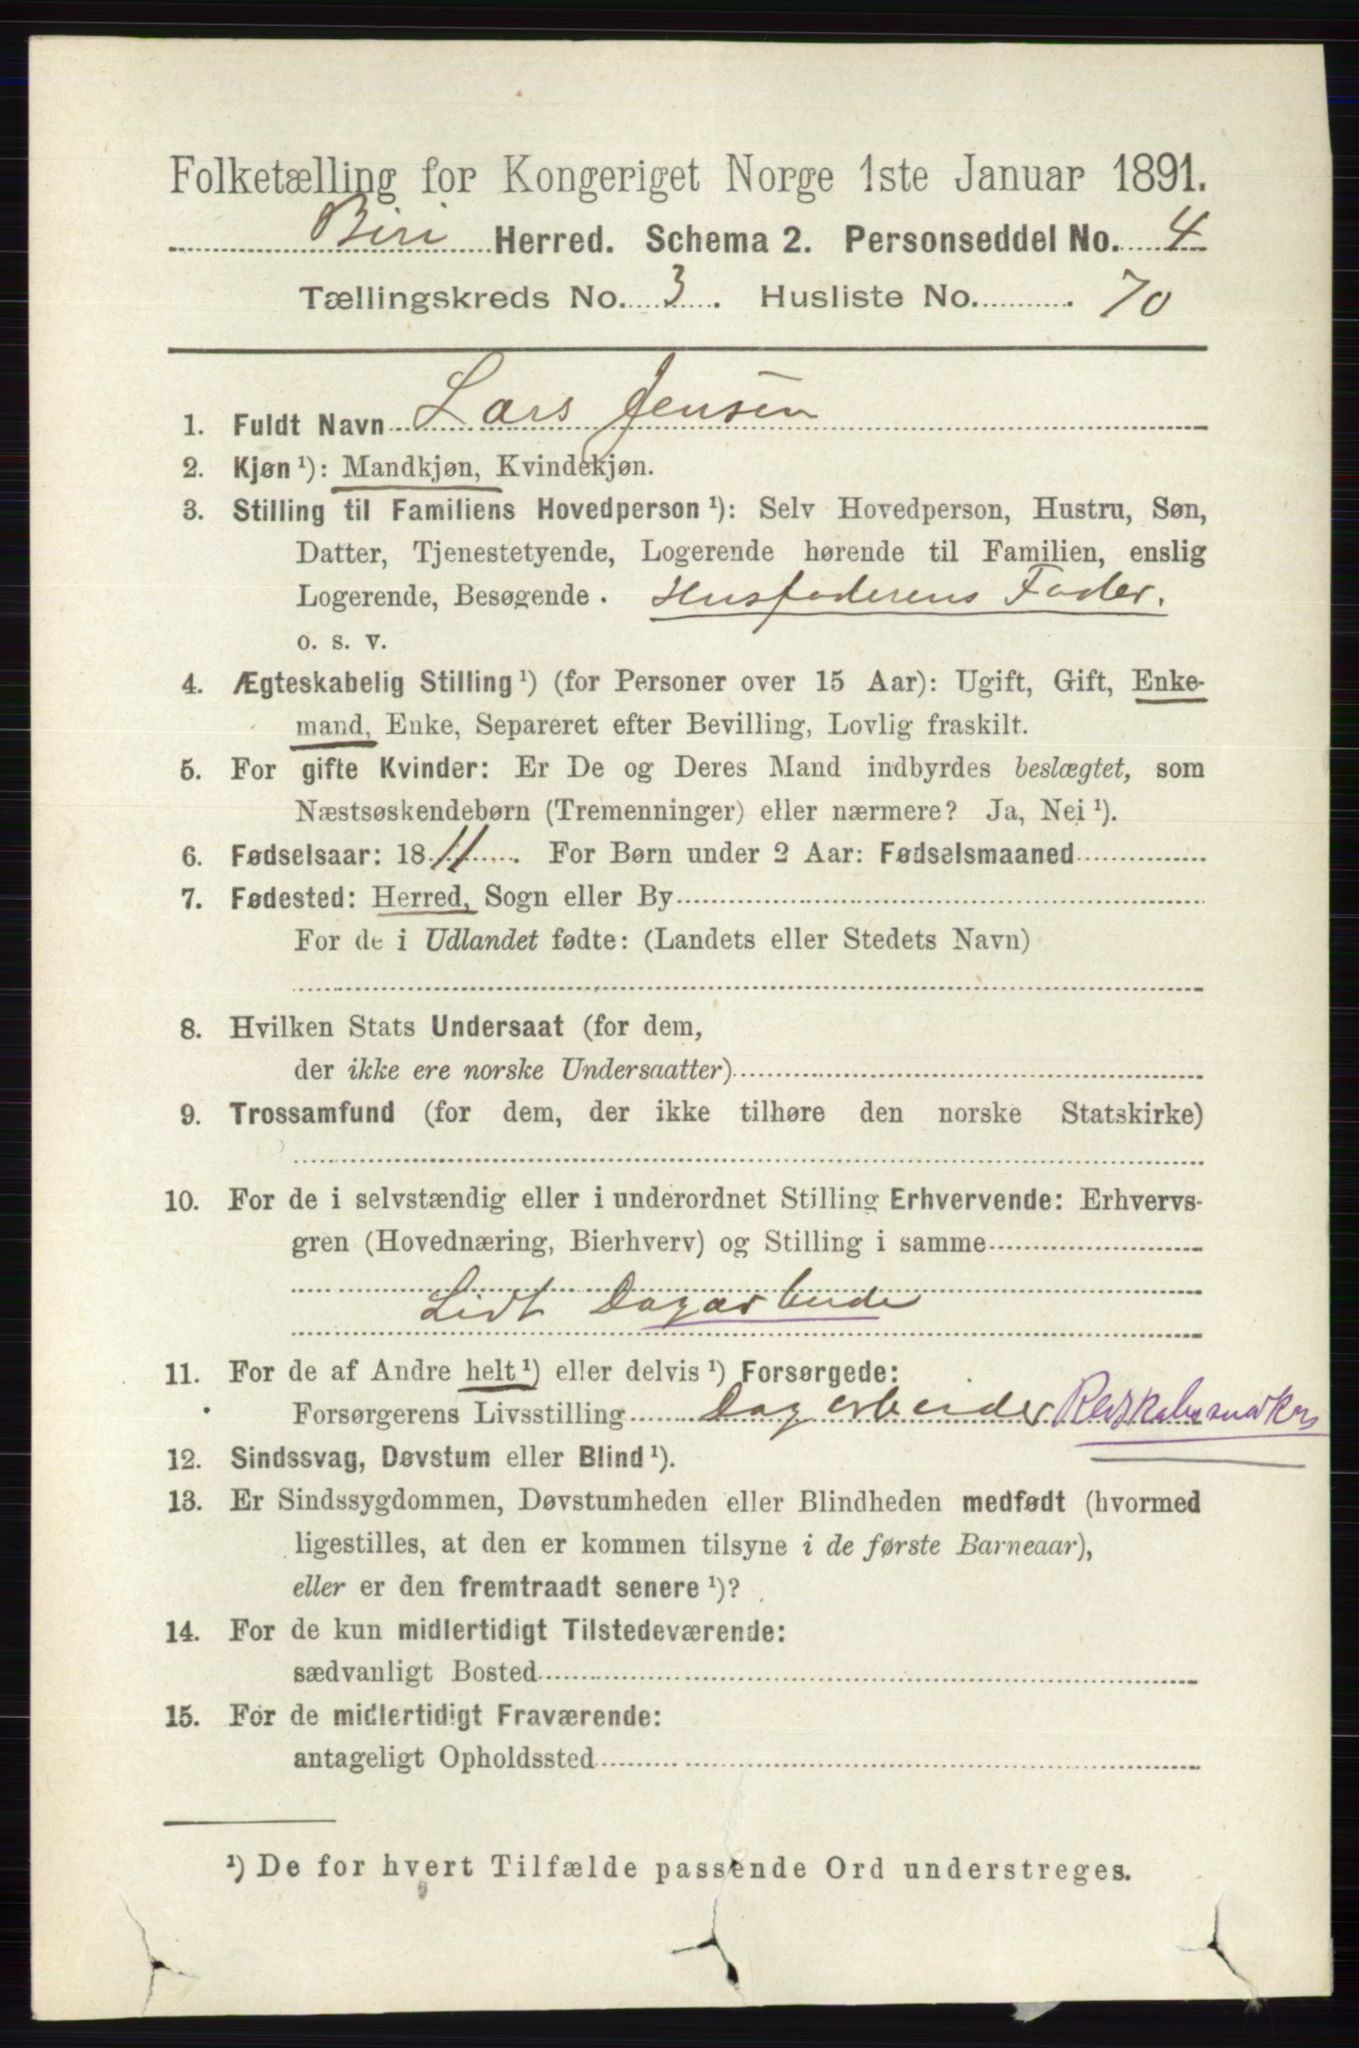 Folketælling for Kongeriget Norge 1ste Januar 1891.
Biri Herred. Schema 2. Personseddel No. 4
Tællingskreds No. 3. Husliste No. 70
1. Fuldt Navn Lars Jensen
2. Kjøn ¹): Mandkjøn, Kvindekjøn.
3. Stilling til Familiens Hovedperson ¹): Selv Hovedperson, Hustru, Søn,
Datter, Tjenestetyende, Logerende hørende til Familien, enslig
Logerende, Besøgende. Husfaderens Fader.
o. s. v.
4. Ægteskabelig Stilling ¹) (for Personer over 15 Aar): Ugift, Gift, Enke-
mand, Enke, Separeret efter Bevilling, Lovlig fraskilt.
5. For gifte Kvinder: Er De og Deres Mand indbyrdes beslægtet, som
Næstsøskendebørn (Tremenninger) eller nærmere? Ja, Nei ¹).
6. Fødselsaar: 1811. For Børn under 2 Aar: Fødselsmaaned
7. Fødested: Herred, Sogn eller By
For de i Udlandet fødte: (Landets eller Stedets Navn)
8. Hvilken Stats Undersaat (for dem,
der ikke ere norske Undersaatter)
9. Trossamfund (for dem, der ikke tilhøre den norske Statskirke)
10. For de i selvstændig eller i underordnet Stilling Erhvervende: Erhvervs-
gren (Hovednæring, Bierhverv) og Stilling i samme
Lidt Dagarbeide
11. For de af Andre helt ¹) eller delvis ¹) Forsørgede:
Forsørgerens Livsstilling Dagarbeider Redskabsmaker
12. Sindssvag, Døvstum eller Blind ¹).
13. Er Sindssygdommen, Døvstumheden eller Blindheden medfødt (hvormed
ligestilles, at den er kommen tilsyne i de første Barneaar),
eller er den fremtraadt senere ¹)?
14. For de kun midlertidigt Tilstedeværende:
sædvanligt Bosted
15. For de midlertidigt Fraværende:
antageligt Opholdssted
¹) De for hvert Tilfælde passende Ord understreges.